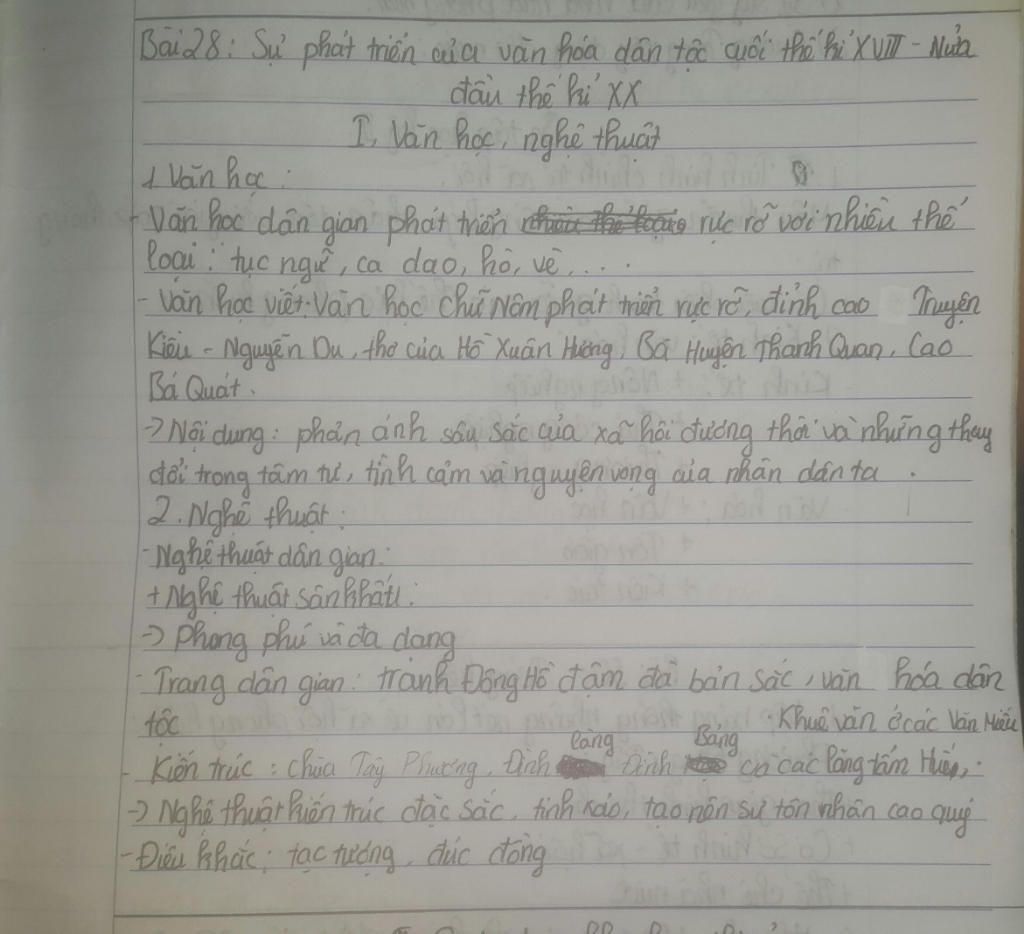 Bài 28: Sự phát triển của văn hóa dân tộc cuối thế kỉ XVIII - Nửa
đầu thế kỉ XX
I, Văn học, nghệ thuật
1 Văn học :
- Văn học dân gian phát triển nhiều thể loại rực rỡ với nhiều thể
loại : tục ngữ, ca dao, hò, vè, ....
- Văn học viết: Văn học chữ Nôm phát triển rực rỡ, đỉnh cao Truyện
Kiều - Nguyễn Du, thơ của Hồ Xuân Hương, Bá Huyện Thanh Quan, Cao
Bá Quát.
-> Nội dung: phản ánh sâu sắc của xã hội đương thời và những thay
đổi trong tâm tư, tình cảm và nguyện vọng của nhân dân ta .
2. Nghệ thuật :
- Nghệ thuật dân gian:
+ Nghệ thuật sân khấu:
-> Phong phú và đa dạng
- Trang dân gian : tranh Đông Hồ đậm đà bản sắc, văn hóa dân
tộc
· Khuê văn ở các Văn Miếu
làng Bảng
- Kiến trúc : chùa Tây Phương, Đình Đình có các lăng tẩm Huế,
-> Nghệ thuật kiến trúc đặc sắc, tinh xảo, tạo nên sự tôn nhân cao quý
- Điêu khắc : tạc tượng, đúc đồng